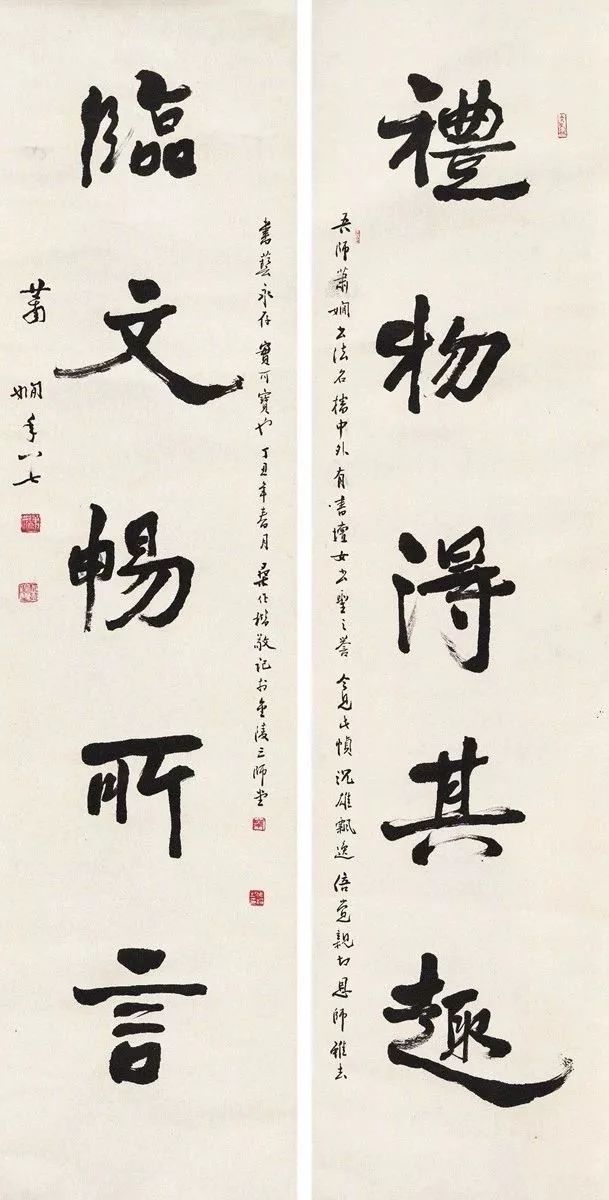 禮物得其趣
吾師蕭嫻書法名播中外有書壇女書聖之譽今見此幀沉雄飄逸倍覺親切恩師雖去
書藝永存寶可寶也丁丑年春月桑作楷敬記於金陵三師堂
臨文暢所言
蕭嫻年八七